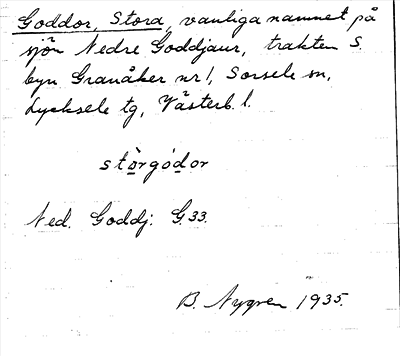 Goddor, Stora, vanliga namnet på
sjön Nedre Goddjaur, trakten S.
byn Granåker nr 1, Sorsele sn,
Lycksele tg, Västerb. l.
stòrgódor
Ned. Goddj. G.33.
B. Nygren 1935.